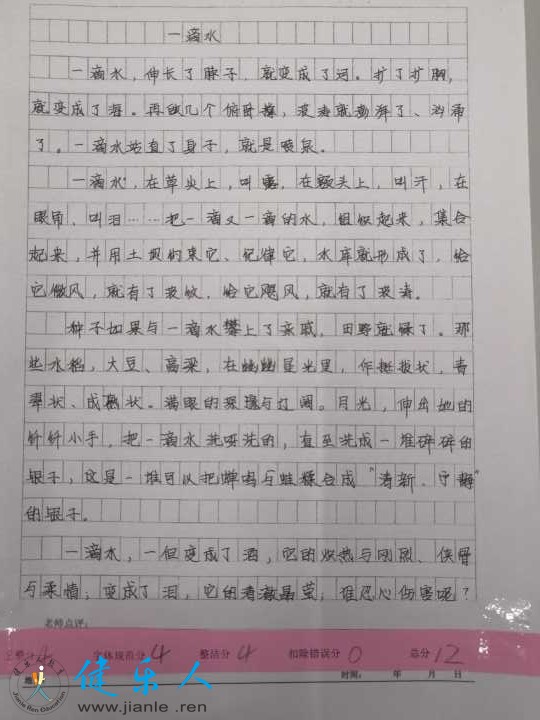 一滴水
一滴水，伸长了脖子，就变成了河。扩了扩胸，
就变成了海。再做几个俯卧撑，波涛就澎湃了、汹涌
了。一滴水站直了身子，就是喷泉。
一滴水，在草尖上，叫露，在额头上，叫汗，在
眼角，叫泪……把一滴又一滴的水，组织起来，集合
起来，并用土坝约束它、纪律它，水库就形成了，给
它微风，就有了波纹，给它飓风，就有了波涛。
种子如果与一滴水攀上了亲戚，田野就绿了。那
些水稻，大豆、高粱，在幽幽星光里，作挺拔状，青
翠状、成熟状。满眼的深邃与辽阔。月光，伸出她的
纤纤小手，把一滴水洗呀洗的，直至洗成一堆碎碎的
银子，这是一堆可以把蝉鸣与蛙噪合成“清新、宁静”
的银子。
一滴水，一但变成了酒，它的炽热与刚烈、侠骨
与柔情；变成了泪，它的清澈晶莹，谁忍心伤害呢？
老师点评：
整分4 字体规范分4 整洁分4 扣除错误分0 总分12
时间： 年 月 日
健乐人
Jianle Ren Education
www.jianle.ren